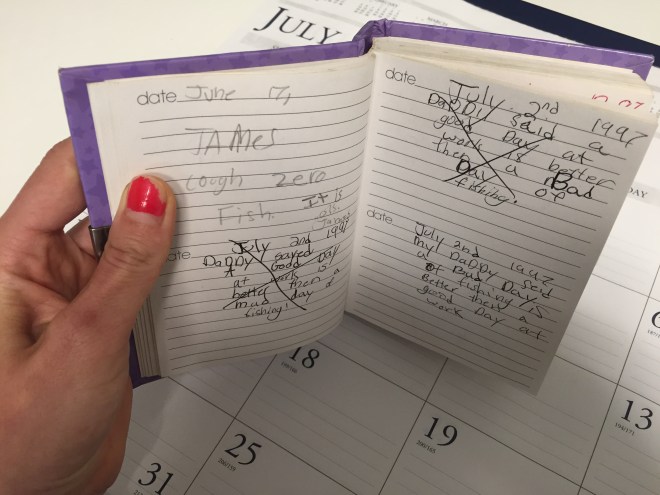 JULY
date June 17,
JAMes
cough zero
Fish. It is
also
James
date July 2nd 1997
DaDDy sayed
a Good Day
at work is
better then a
mad day of
fishing!
date July 2nd 1997
DaDDy said a
good Day at
work is better
then a Bad
Day of
fishing!
date July 2nd 1997
my DaDDy said
a Bad Day
of fishing is
Better then a
good Day at
work
18
19
25
31
13
DAY